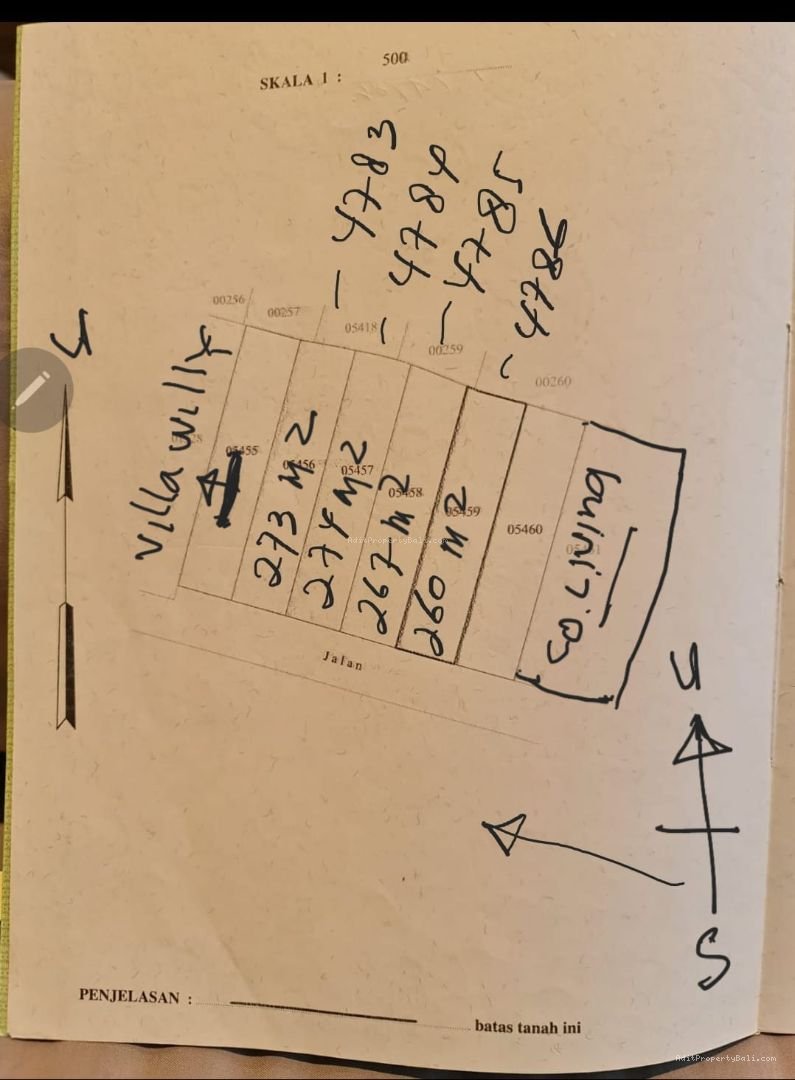 500
SKALA 1 :
- 4783
- 4784
- 4785
- 4786
U
00256
00257
05418
00259
00260
Villa Willy
05455
05456
05457
05458
05459
05460
273 M2
274 M2
267 M2
260 M2
AditPropertyBali.com
Jalan
U
S
PENJELASAN :
batas tanah ini
AditPropertyBali.com